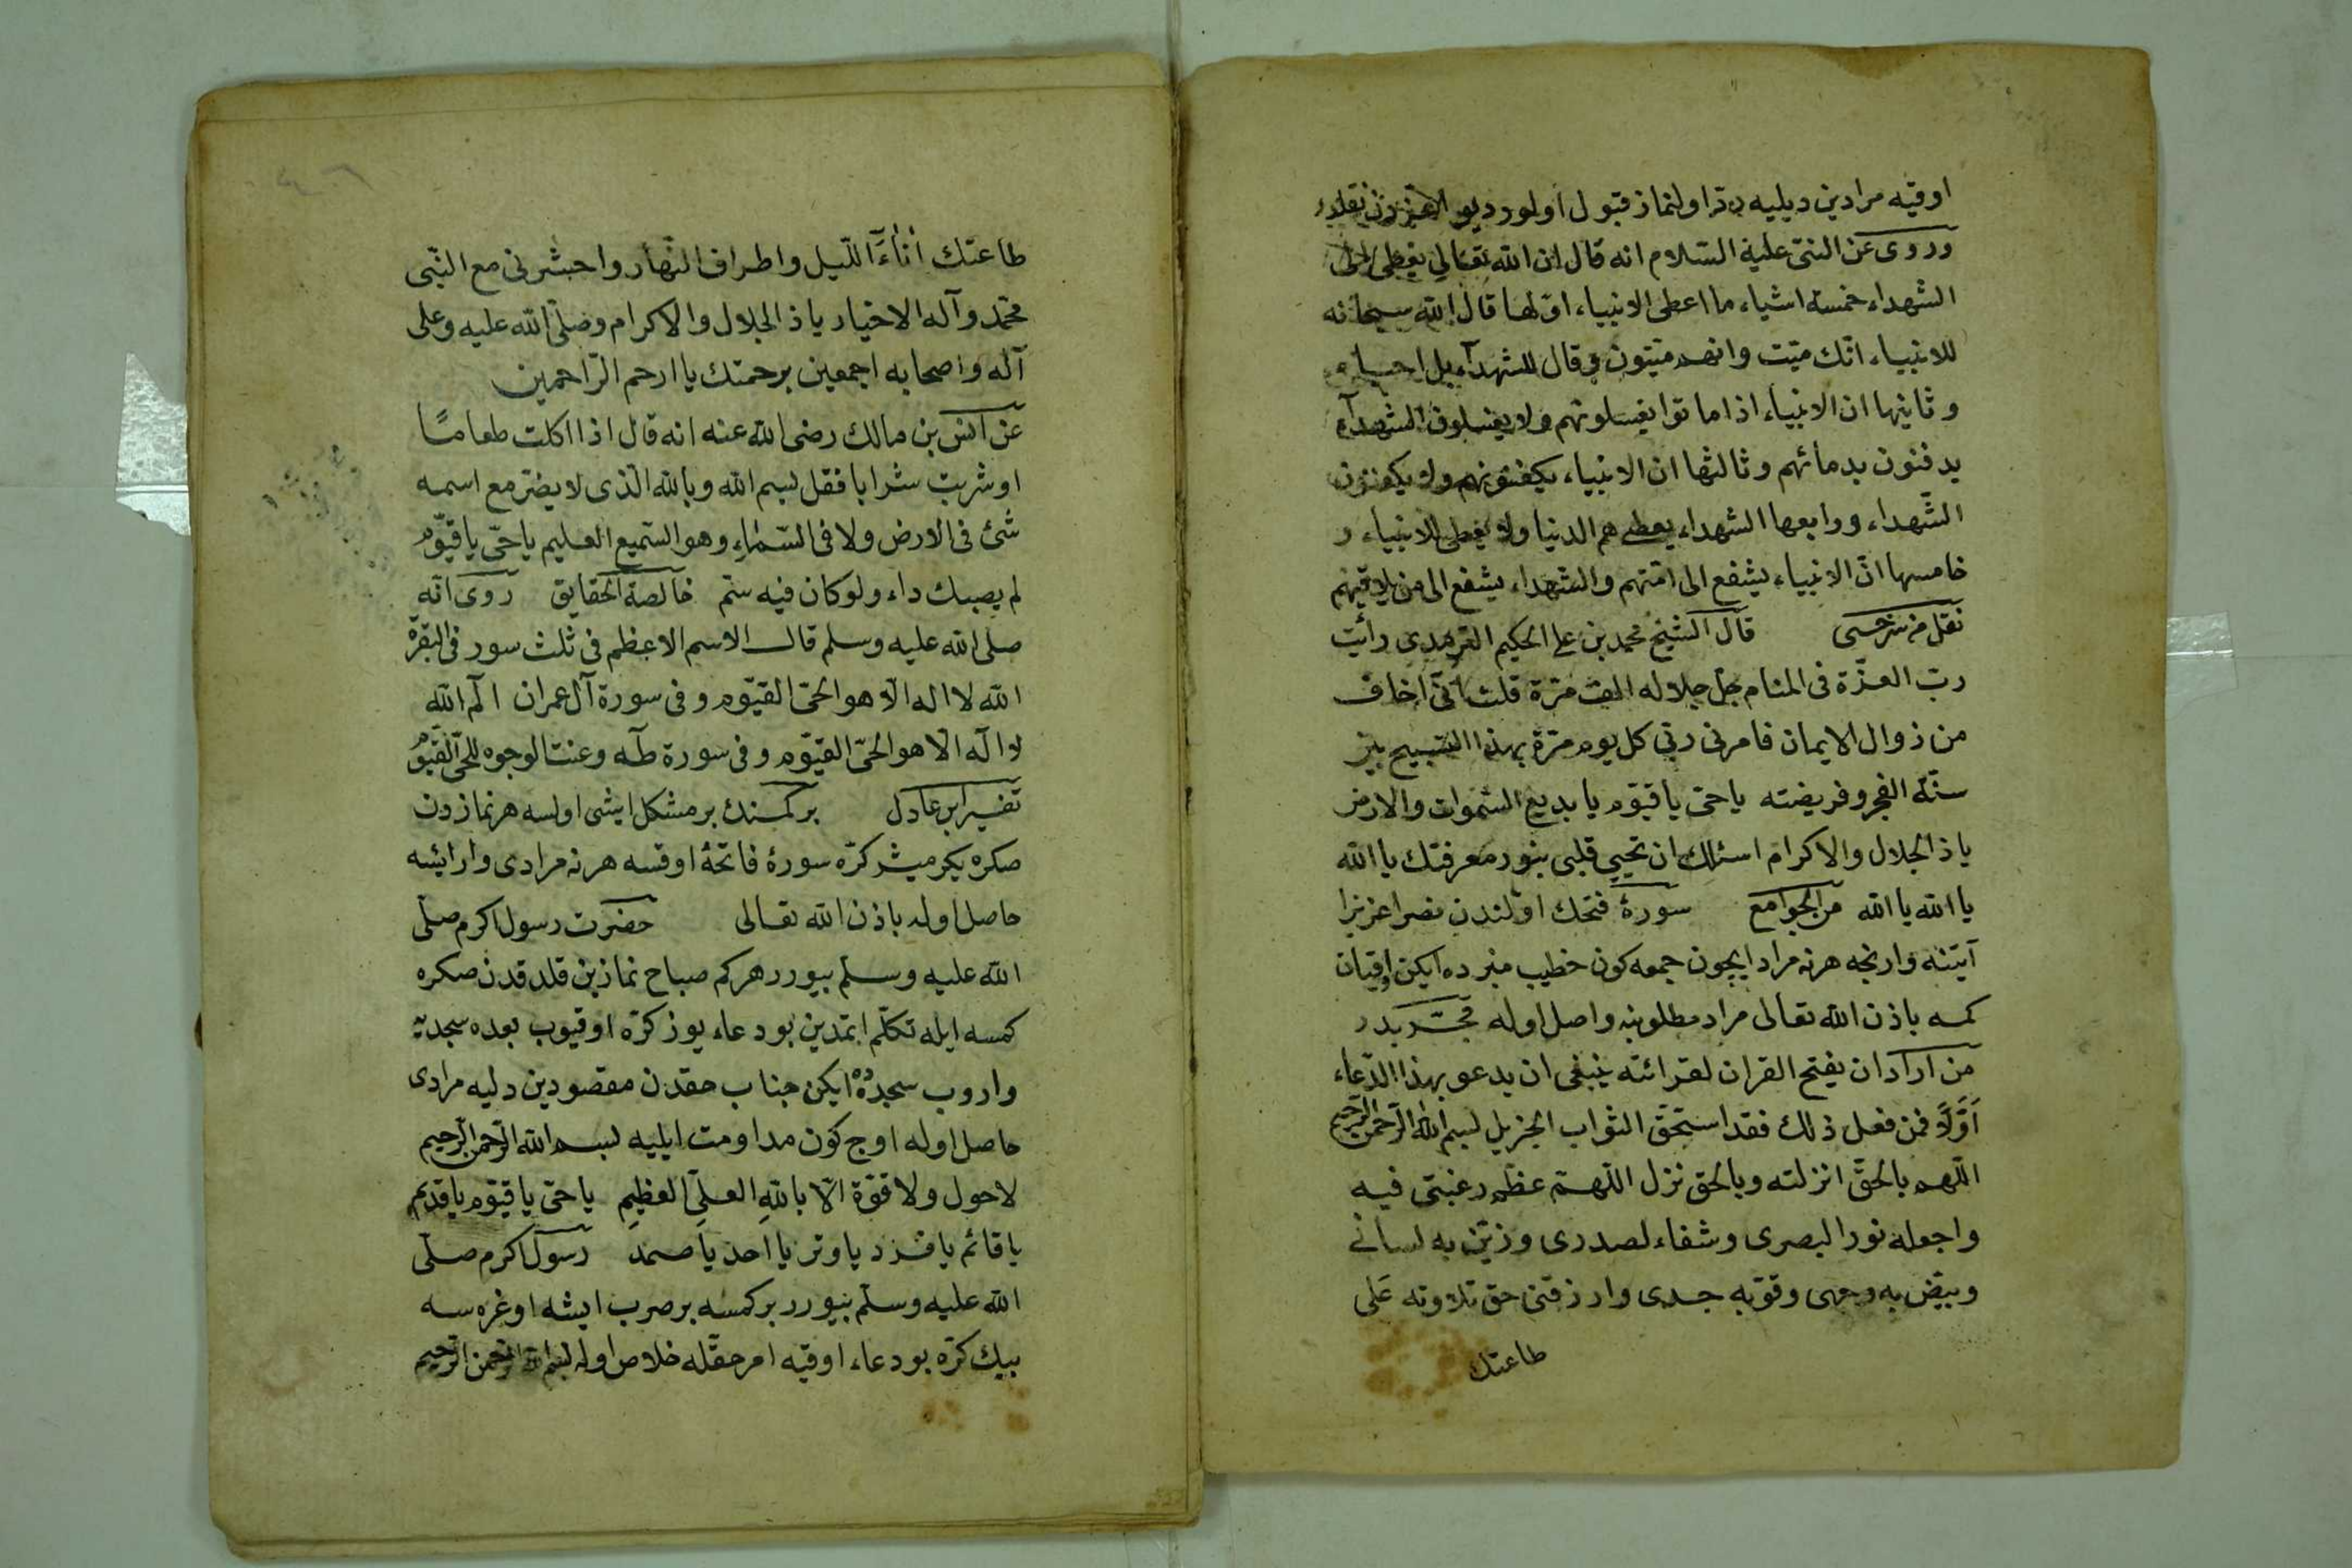 اوقيه مرادين ديليه رد اولنماز قبول اولور ديو
وروى عن النبى عليه السلام انه قال ان الله تعالى يعطى الى
الشهداء خمسة اشياء ما اعطى الانبياء اوّلها قال الله سبحانه
للانبياء انّك ميّت وانهم ميّتون فى قال للشهدآء بل احياء
وثانيها ان الانبياء اذا ماتوا يغسلونهم ولا يغسلون الشهدآء
يدفنون بدمائهم وثالثها ان الانبياء يكفنونهم ولا يكفنون
الشّهداء ورابعها الشهداء يعطى هم الدنيا ولا يعطى الانبياء و
خامسها انّ الانبياء يشفع الى امّتهم والشهداء يشفع الى من يلاقيهم
نقل من سرخسى قال الشيخ محمد بن على الحكيم الترمدى رأيت
ربّ العزّة فى المنام جلّ جلاله الف مرّة قلت انّى اخاف
من زوال الايمان فامرنى ربّى كل يوم مرّة بهذا التسبيح بين
سنّة الفجر وفريضته ياحىّ ياقيّوم يا بديع السّموات والارض
ياذ الجلال والاكرام اسئلك ان تحيى قلبى بنور معرفتك يا الله
يا الله يا الله من الجوامع سورۀ فتحك اوّلندن نصرا عزيزا
آيتنه وارنجه هرنه مراد ايچون جمعه كون خطيب منبرده ايكن اوقيان
كمسه باذن الله تعالى مراد مطلوبنه واصل اوله مجرّبدر
من اراد ان يفتح القران لقرائته ينبغى ان يدعو بهذا الدّعاء
اَوَّلاً فمن فعل ذلك فقد استحقّ الثواب الجزيل بسم الله الرّحمن الرّحيم
اللّهم بالحقّ انزلته وبالحق نزل اللّهمّ عظّم رغبتى فيه
واجعله نورا لبصرى وشفاء لصدرى وزيّن به لسانى
وبيّض به وجهى وقوّ به جسدى وارزقنى حق تلاوته عَلى
طاعتك
طاعتك اٰنآءَ اللّيل واطراف النّهار واحشرنى مع النّبى
محمّد وآله الاخيار ياذ الجلال والاكرام وصلّى الله عليه وعلى
آله واصحابه اجمعين برحمتك يا ارحم الرّاحمين
عن انس بن مالك رضى الله عنه انه قال اذا اكلت طعامًا
او شربت شرابا فقل بسم الله وبالله الّذى لا يضرّ مع اسمه
شئ فى الارض ولا فى السّماء وهو السّميع العليم ياحىّ ياقيّوم
لم يصبك داء ولو كان فيه سمّ خالصة الحقايق روى انّه
صلى الله عليه وسلم قال الاسم الاعظم فى ثلث سور فى البقرة
الله لا اله الّا هو الحىّ القيّوم وفى سورة آل عمران الم الله
لا اله الّا هو الحىّ القيّوم وفى سورة طه وعنت الوجوه للحىّ القيّوم
تفسير ابن عادل بر كمسنك بر مشكل ايشى اولسه هر نمازدن
صكره يكرميشر كرّه سورۀ فاتحۀ اوقسه هرنه مرادى وارايسه
حاصل اوله باذن الله تعالى حضرت رسول اكرم صلّى
الله عليه وسلّم بيورر هركم صباح نمازين قلدقدن صكره
كمسه ايله تكلّم ايتمدين بو دعاء يوز كرّه اوقيوب بعده سجديه
واروب سجدۀده ايكن جناب حقدن مقصودين دليه مرادى
حاصل اوله اوچ كون مداومت ايليه بسم الله الرّحمن الرّحيم
لاحول ولا قوّة الّا باللهِ العلىِّ العظيمِ ياحىّ ياقيّوم ياقديم
ياقائم يافرد ياوتر يا احد ياصمد رسول اكرم صلّى
الله عليه وسلّم بيورر بر كمسه بر صرب ايشه اوغرسه
بيك كرّه بو دعاء اوقيه امر حقّله خلاص اوله بسم الله الرّحمن الرّحيم